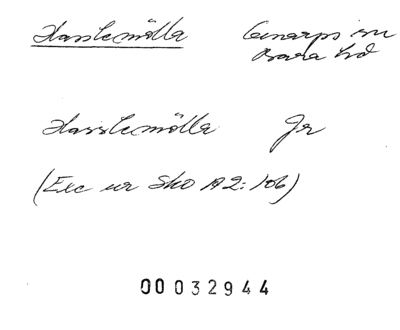 Hasslemölla Genarps sn
Bara hd
Hasslemölla Jr
(Exc ur SkO A2:106)
00032944